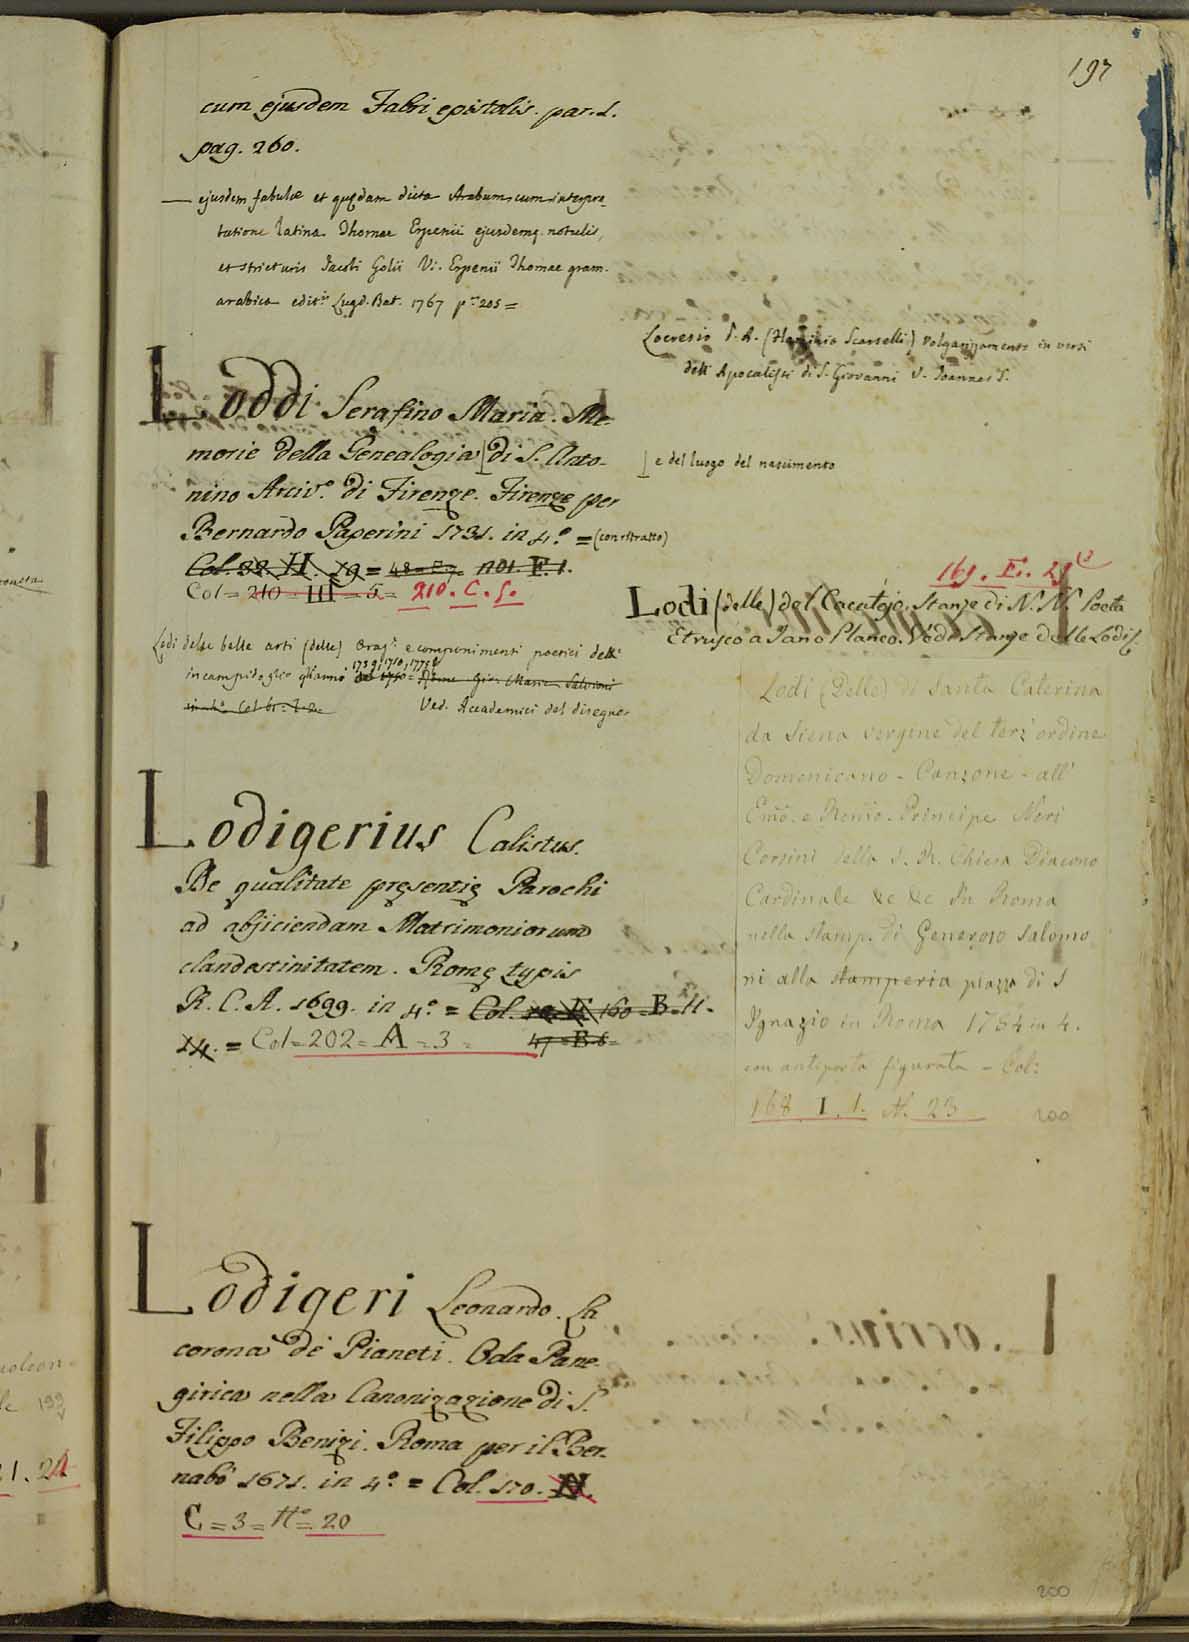 197
cum ejusdem Fabri epistolis. par. 1.
pag. 260.
— ejusdem fabulæ et quędam dicta Arabum cum interpre-
tatione latina Thomae Erpenii ejusdemq. notulis,
et stricturis Jacobi Golii V. Erpenii Thomae gram.
arabica edit. Lugd. Bat. 1767 p. 205 =
Loddi Serafino Maria. Me-
morie della Genealogia di S. Anto-
nino Arciv.º di Firenze. Firenze per
Bernardo Paperini 1731. in 4.º = (con ritratto)
Col. 32. H. 19 = 48 = E 7. F. 1.
Col = 210 = III = 5 = 210. C. 5.
Lodi delle belle arti (delle) Oraz.e e componimenti poetici dell'
in campidoglio gl'anni 1739, 1750, 1771
in 4.º Col. 61. I. 2. Ved. Accademici del disegno
Lodigerius Calistus.
De qualitate pręsentię Parochi
ad abjiciendam Matrimoniorum
clandestinitatem. Romę typis
R. C. A. 1699. in 4.º = Col. 160 = B = 11.
14. = Col = 202 = A = 3 = 47 = B. 6 =
Lodigeri Leonardo. La
corona de Pianeti. Oda Pane-
girica nella Canonizazione di S.
Filippo Benizi. Roma per il Ber-
nabò 1671. in 4.º = Col. 170. N.
C = 3 = Nº = 20
Locresio P. A. (Flaminio Scarselli) volgarizzamento in versi
dell' Apocalissi di S. Giovanni V. Joannes S.
e del luogo del nascimento
169. E. 29
Lodi (delle) del Cacatojo. Stanze di N. N. Poeta
Etrusco a Jano Planco. Vedi Stanze delle Lodi
Lodi (Delle) di Santa Caterina
da Siena vergine del terz' ordine
Domenicano - Canzone - all'
Emo. e Rmo. Principe Neri
Corsini della S. R. Chiesa Diacono
Cardinale &c &c In Roma
nella stamp. di Generoso Salomo
ni alla stamperia piazza di S
Ignazio in Roma 1754 in 4.
con antiporta figurata - Col:
168. I. 1. N. 23
200
200